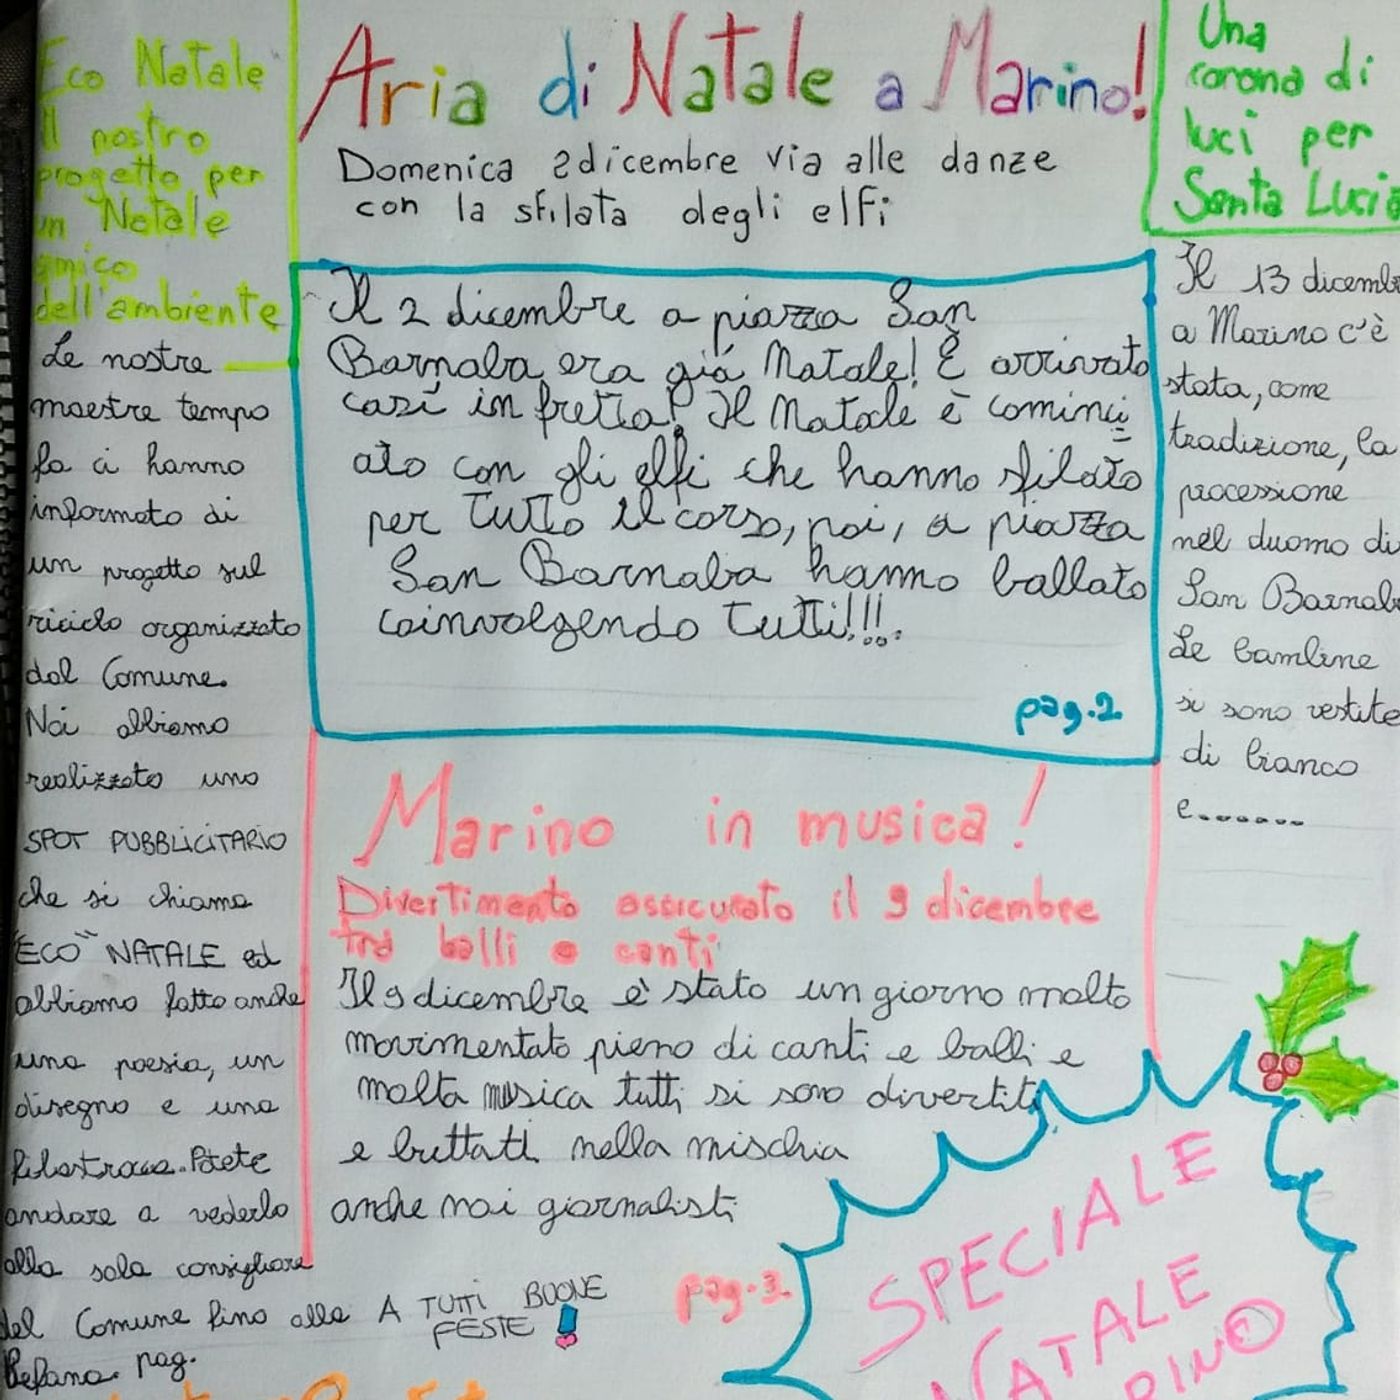 Eco Natale
Il nostro
progetto per
un Natale
amico
dell'ambiente
Le nostre
maestre tempo
fa ci hanno
informato di
un progetto sul
riciclo organizzato
dal Comune.
Noi abbiamo
realizzato uno
SPOT PUBBLICITARIO
che si chiama
"ECO" NATALE ed
abbiamo fatto anche
una poesia, un
disegno e una
filastrocca. Potete
andare a vederlo
alla sala consigliare
del Comune fino alla
Befana. pag.
Aria di Natale a Marino!
Domenica 2 dicembre via alle danze
con la sfilata degli elfi
Il 2 dicembre a piazza San
Barnaba era giá Natale! È arrivato
cosí in fretta! Il Natale è cominci
ato con gli elfi che hanno sfilato
per tutto il corso, poi, a piazza
San Barnaba hanno ballato
coinvolgendo tutti!!!.
pag.2
Marino in musica!
Divertimento assicurato il 9 dicembre
tra balli e canti
Il 9 dicembre è stato un giorno molto
movimentato pieno di canti e balli e
molta musica tutti si sono divertiti
e buttati nella mischia
anche noi giornalisti
pag.3
A TUTTI BUONE
FESTE!
Una
corona di
luci per
Santa Lucia
Il 13 dicemb
a Marino c'è
stata, come
tradizione, la
processione
nel duomo di
San Barnab
Le bambine
si sono vestite
di bianco
e.......
SPECIALE
NATALE
RINO